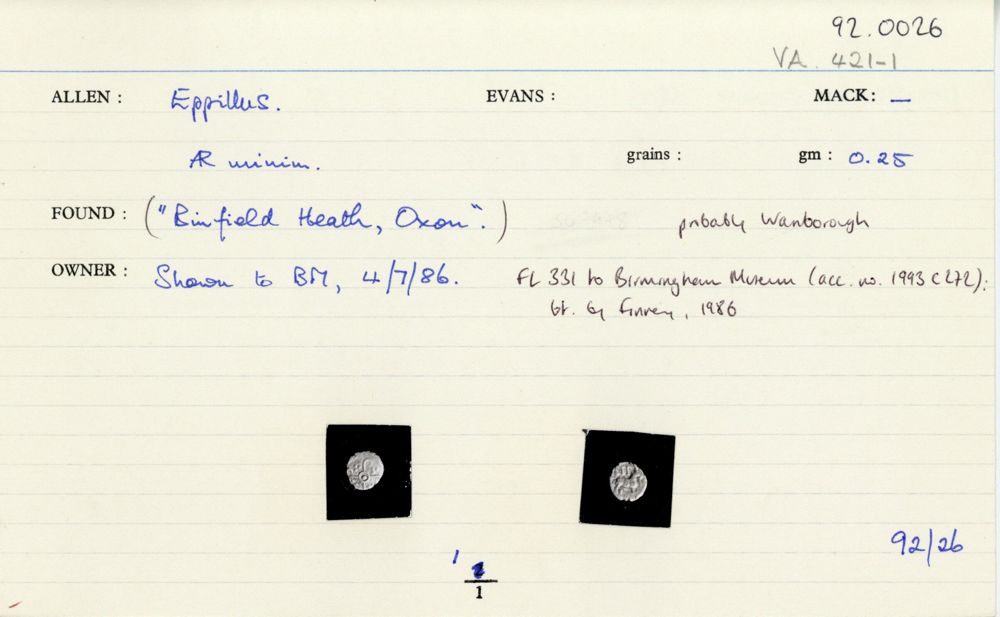 92.0026
VA. 421-1
ALLEN : Eppillus. EVANS : MACK: —
AR minim. grains : gm : 0.25
FOUND : ("Binfield Heath, Oxon".) probably Wanborough
OWNER : Shown to BM, 4/7/86. FL 331 to Birmingham Museum (acc. no. 1993 C272).
bt. by Finney, 1986
92/26
1
1